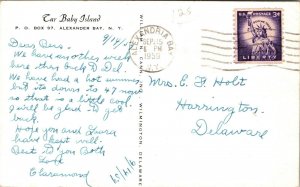 Car Baby Island
P. O. BOX 97, ALEXANDER BAY, N. Y.
9/4/59
Dear Bess.
We have another week
here then back to Del.
We have had a hot summer,
but its down to 47 now
so that is a little cool.
We'll be glad to get
back.
Hope you and
have kept well.
Best to you Both
Love
Claramond
WILMINGTON, DELAWARE
125
ALEXANDRIA BAY
SEP 15
PM
1959
N. Y.
U.S. POSTAGE 3¢
LIBERTY
Mrs. E. F. Holt
Harrington.
Delaware